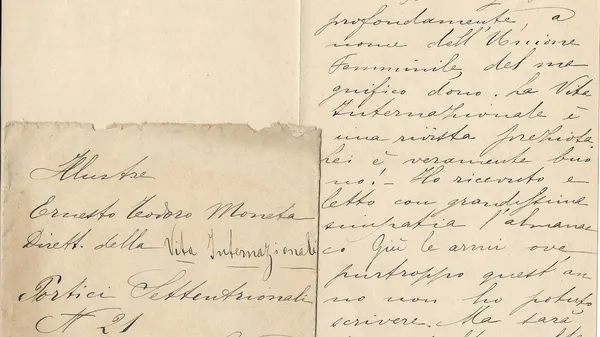 Illustre
Ernesto Teodoro Moneta
Dirett. della Vita Internazionale
Portici Settentrionali
N 21
profondamente, a
nome dell'Unione
Femminile, del ma
gnifico dono. La Vita
Internazionale è
una rivista preziosa.
Lei è veramente buo
no! - Ho ricevuto e
letto con grandissima
simpatia l'almanac
co Giù le armi ove
purtroppo quest'an
no non ho potuto
scrivere. Ma sarà